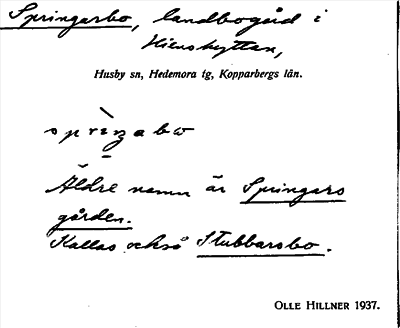 Springarbo, landbogård i
Hienshyttan,
Husby sn, Hedemora tg, Kopparbergs län.
spriŋabω
Äldre namn är Springars
gården.
Kallas också Stubbarsbo.
OLLE HILLNER 1937.